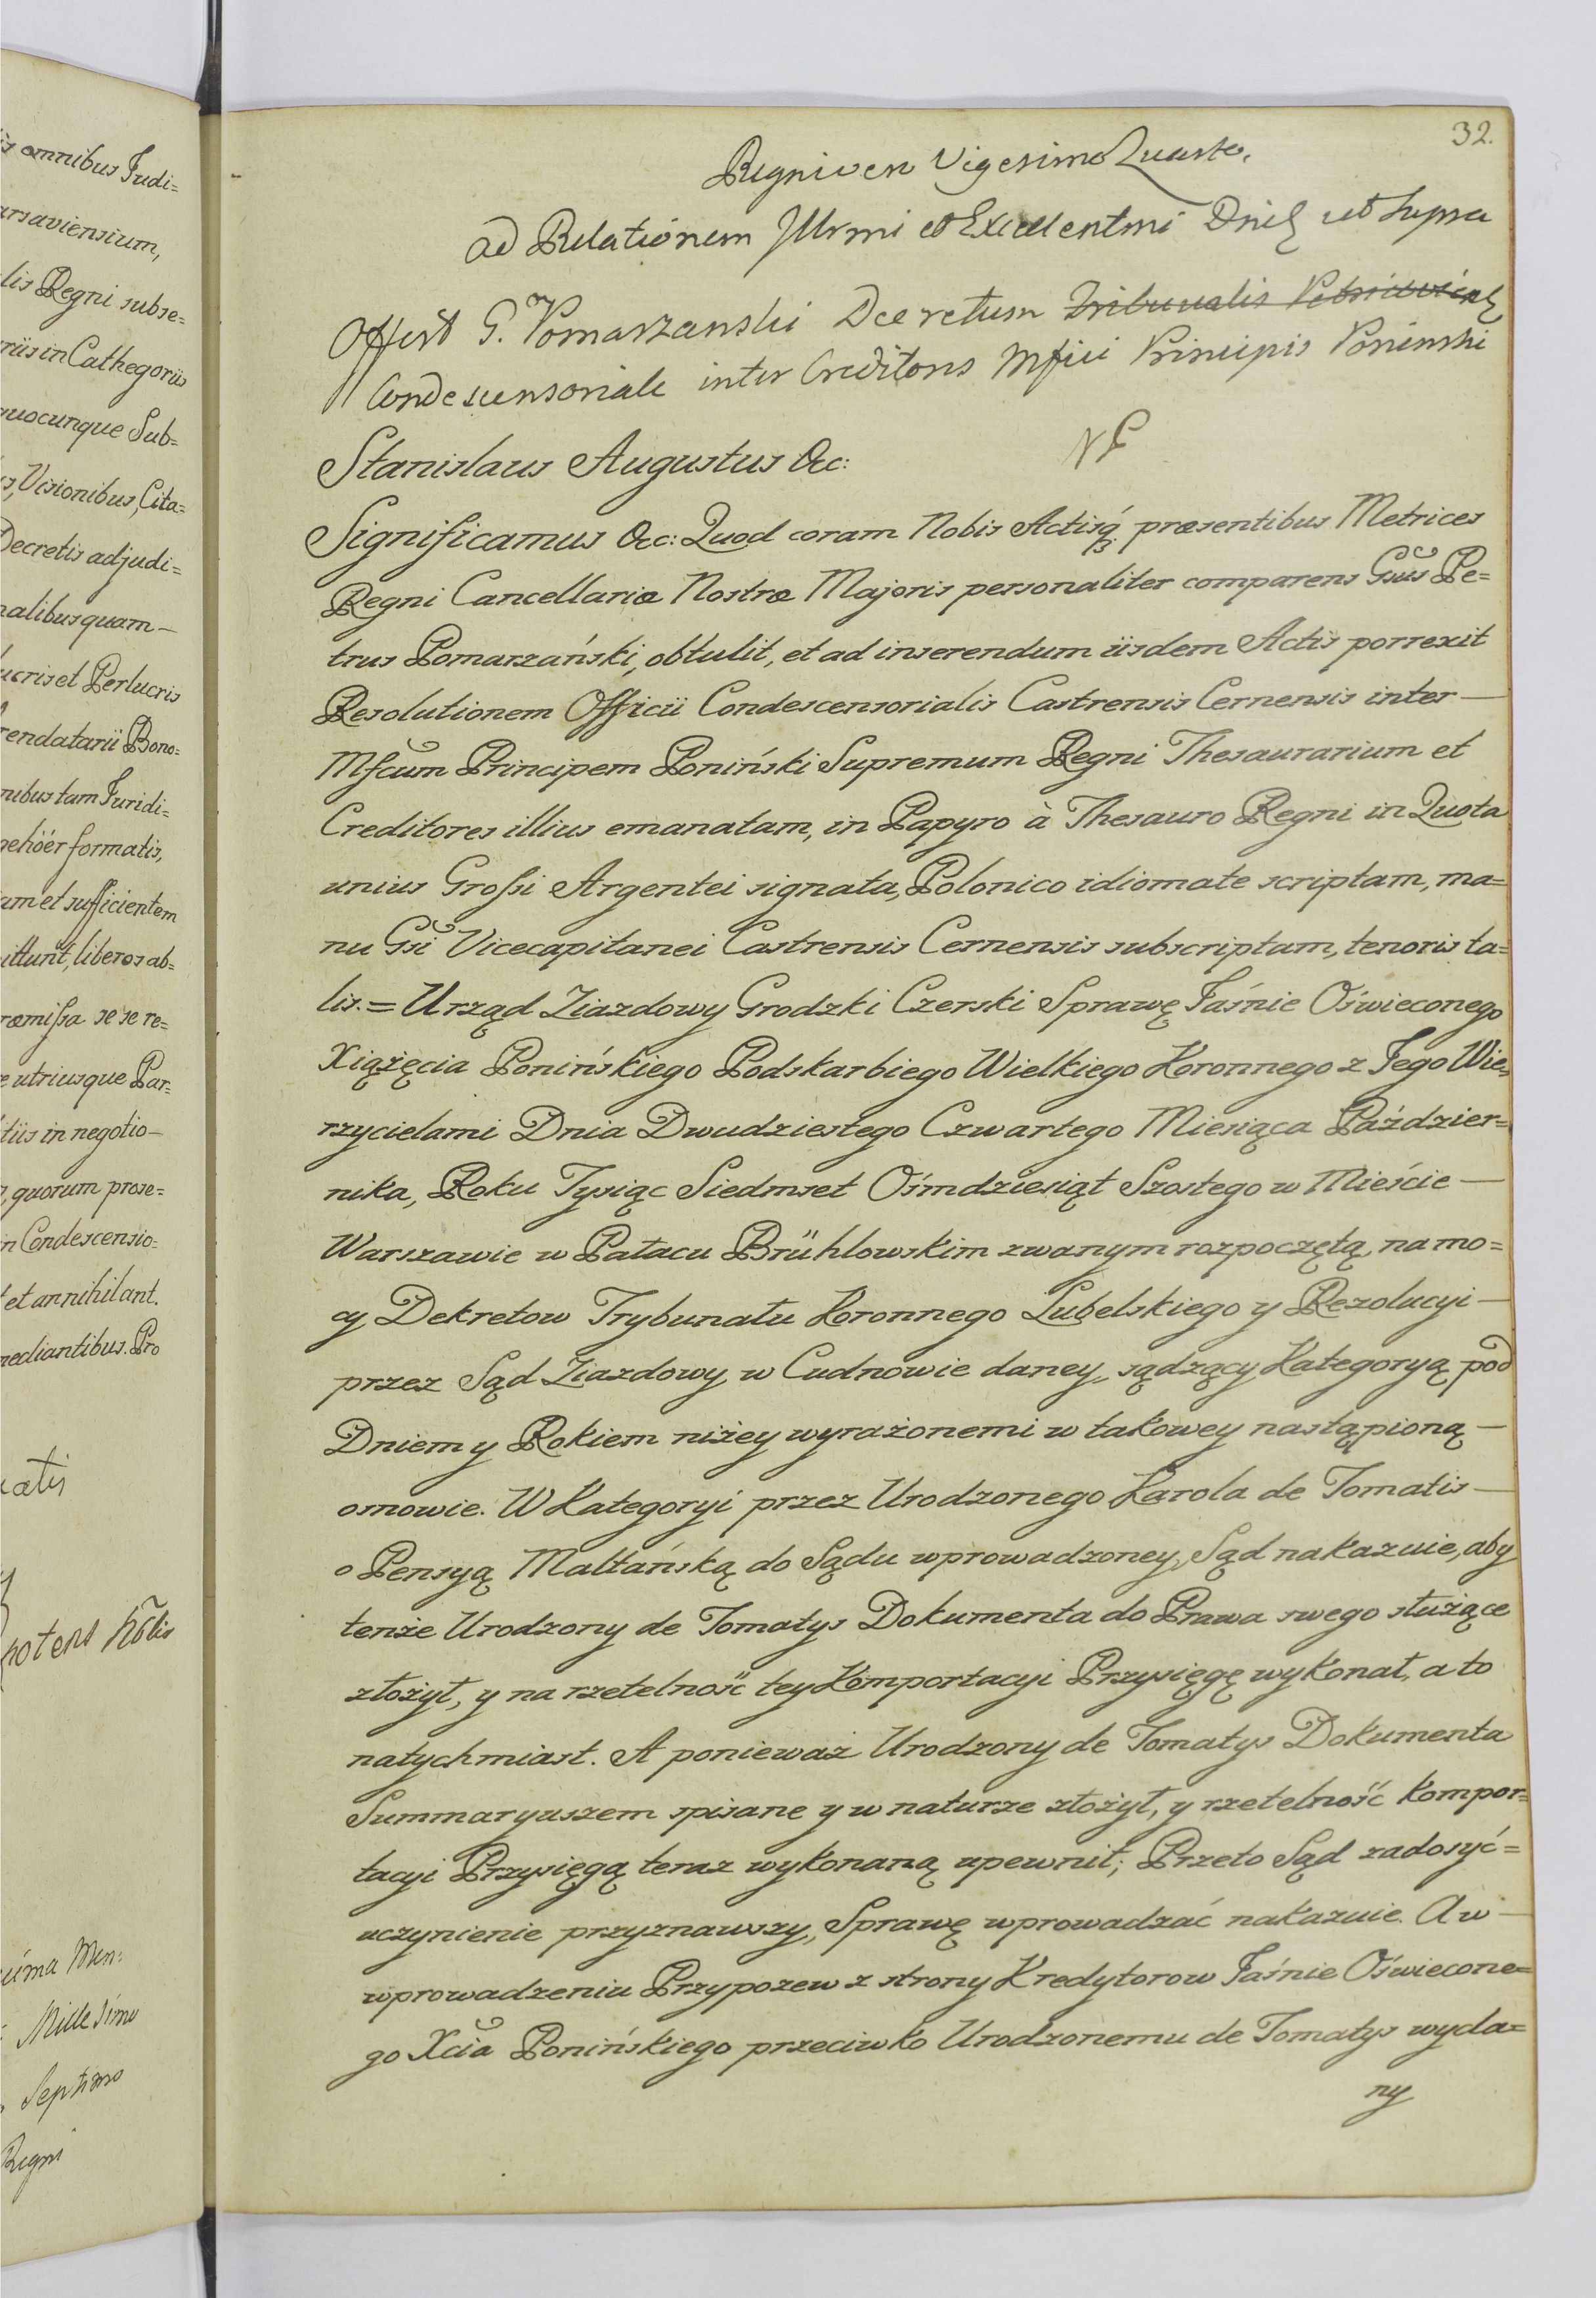 is omnibus Judi=
arsaviensium,
lis Regni subse=
riis in Cathegoriis
quocunque Sub=
s, Visionibus, Cita=
Decretis adjudi=
nalibus quam—
ucris et Perlucris
rendatarii Bono=
nibus tam Juridi=
gehöer formatis,
am et sufficientem
ittunt, liberos ab=
ræmissa se se re=
e utriusque Par=
tiis in negotio—
, quorum prose=
n Condescensio=
et annihilant.
mediantibus. Pro
catis
potens
Men:
Millesimo
Septimo
Regni
32.
Regni vero Vigesimo Quarto.
ad Relationem Illrmi et Excellentmi Dni ut supra
Offert G. Pomarzanski Decretum Tribunalis
Condescensoriale inter Creditores Mfici Principis Poninski
Stanislaus Augustus &c:
Significamus &c: Quod coram Nobis Actisq3 præsentibus Metrices
Regni Cancellariæ Nostræ Majoris personaliter comparens Gsus Pe=
trus Pomarzański, obtulit, et ad inserendum iisdem Actis porrexit
Resolutionem Officii Condescensorialis Castrensis Cernensis inter—
Mfcum Principem Poniński Supremum Regni Thesaurarium et
Creditores illius emanatam, in Papyro à Thesauro Regni in Quota
unius Grossi Argentei signata, Polonico idiomate scriptam, ma=
nu Gsi Vicecapitanei Castrensis Cernensis subscriptam, tenoris ta=
lis. = Urząd Ziazdowy Grodzki Czerski Sprawę Jaśnie Oświeconego
Xiążęcia Ponińskiego Podskarbiego Wielkiego Koronnego z Jego Wie=
rzycielami Dnia Dwudziestego Czwartego Miesiąca Paździer=
nika, Roku Tysiąc Siedmset Ośmdziesiąt Szostego w Mieście—
Warszawie w Pałacu Brühlowskim zwanym rozpoczętą, na mo=
cy Dekretow Trybunału Koronnego Lubelskiego y Rezolucyi—
przez Sąd Ziazdowy w Cudnowie daney, sądzący Kategoryą pod
Dniem y Rokiem niżey wyrażonemi w takowey nastąpioną—
omowie. W Kategoryi przez Urodzonego Karola de Tomatis—
o Pensyą Maltańską do Sądu wprowadzoney, Sąd nakazuie, aby
tenże Urodzony de Tomatys Dokumenta do Prawa swego służące
złożył, y na rzetelność tey Komportacyi Przysięgę wykonał, a to
natychmiast. A ponieważ Urodzony de Tomatys Dokumenta
Summaryuszem spisane y w naturze złożył, y rzetelność kompor=
tacyi Przysięgą teraz wykonaną upewnił; Przeto Sąd zadosyć=
uczynienie przyznawszy, Sprawę wprowadzać nakazuie. A w—
wprowadzeniu Przypozew z strony Kredytorow Jaśnie Oświecone=
go Xcia Ponińskiego przeciwko Urodzonemu de Tomatys wyda=
ny